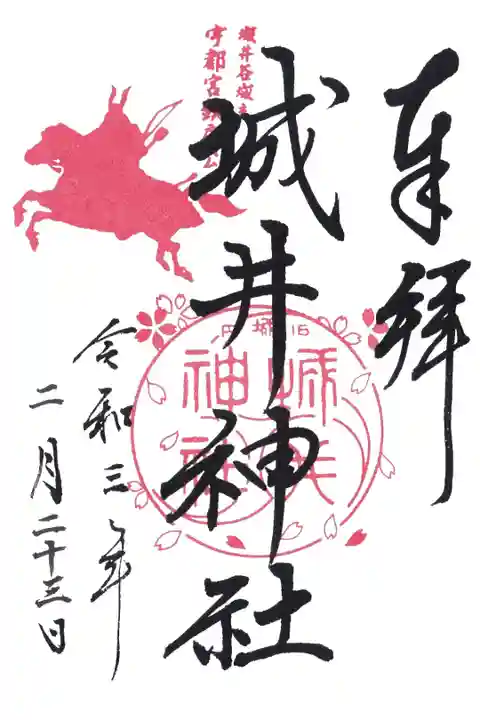 奉拝
城井谷城主
宇都宮鎮房公
城井神社
旧城内
城井
神社
令和三年
二月二十三日